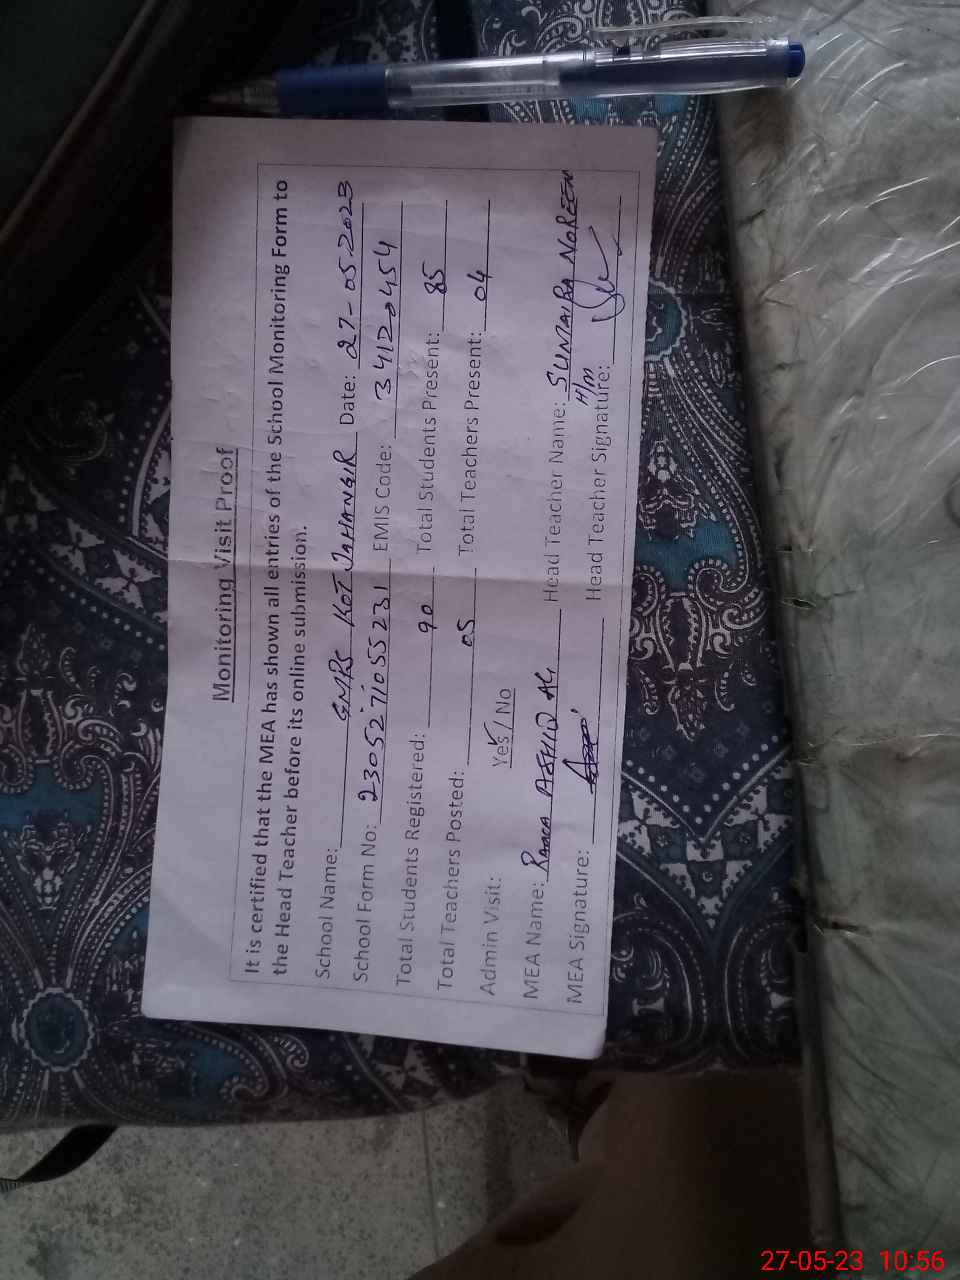 Monitoring Visit Proof
It is certified that the MEA has shown all entries of the School Monitoring Form to
the Head Teacher before its online submission.
School Name: GMPS KOT JAHANGIR Date: 27-05-2023
School Form No: 2305271055231 EMIS Code: 34120454
Total Students Registered: 90 Total Students Present: 85
Total Teachers Posted: 05 Total Teachers Present: 04
Admin Visit: Yes / No
MEA Name: ASHIQ Head Teacher Name: SUMAIRA NOREEN
H/m
MEA Signature: Head Teacher Signature:
27-05-23 10:56